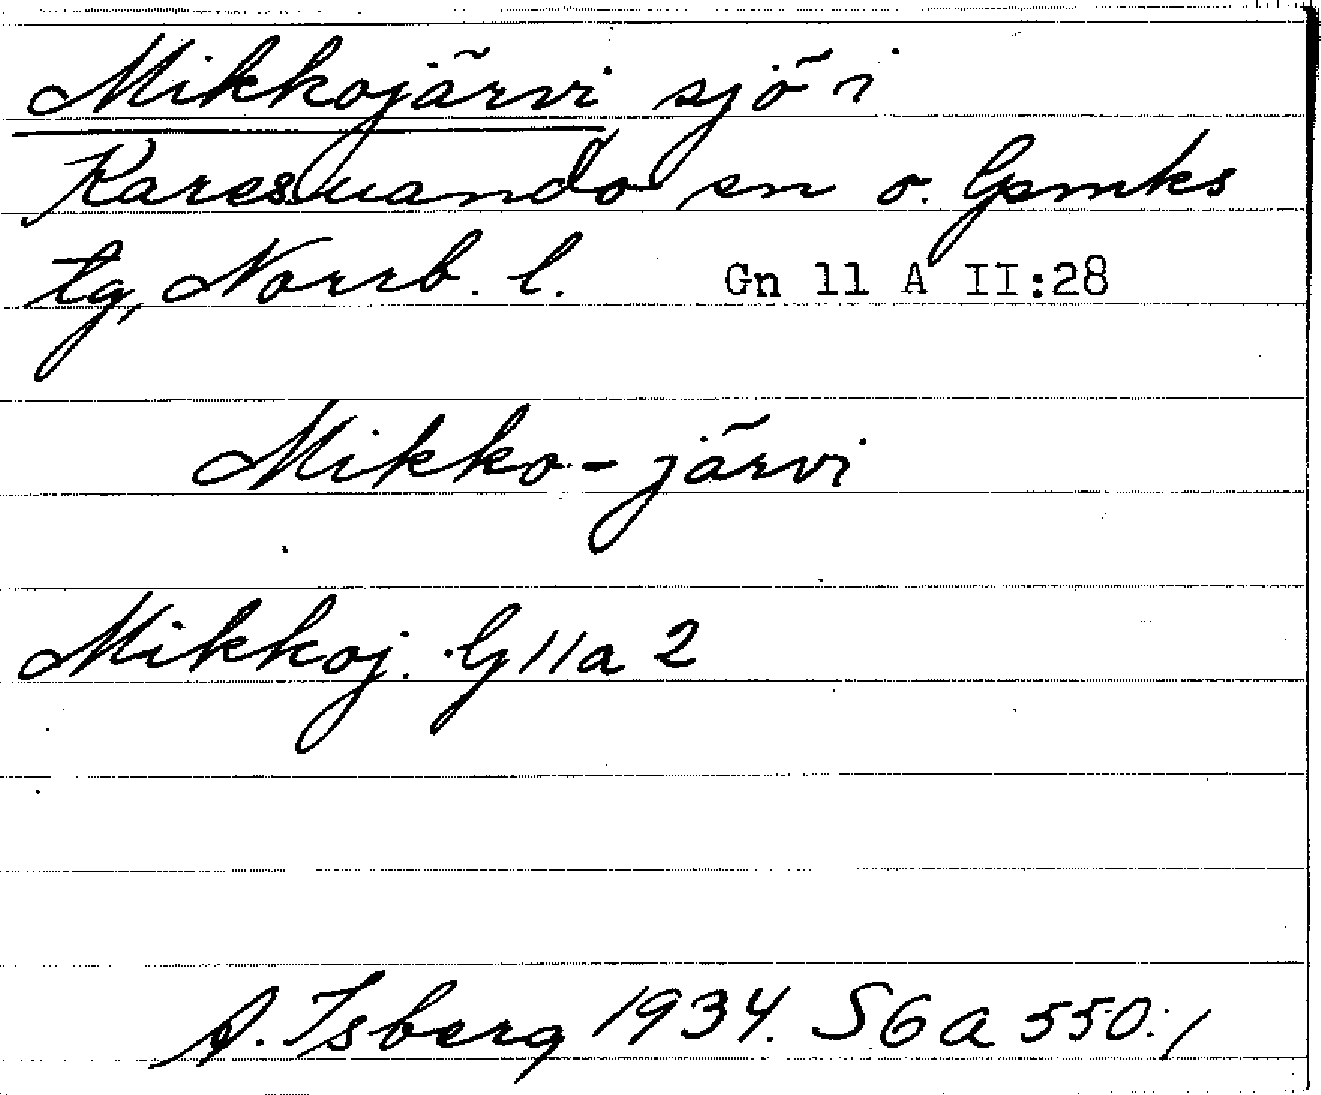 Mikkojärvi sjö i
Karesuando sn o. Gsmks
tg, Norrb. l. Gn 11 A II:28
Mikko-järvi
Mikkoj. G 11a 2
A. Isberg 1934. S6a 550:1